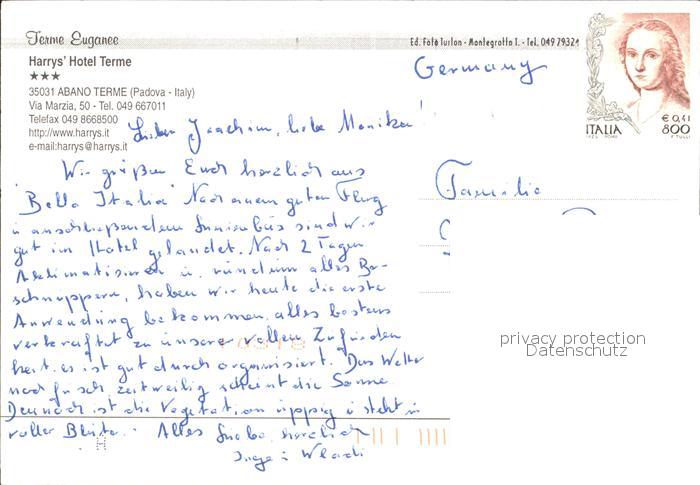 Terme Euganee
Ed. Foto Turlon - Montegrotto T. - Tel. 049 79324
Harrys' Hotel Terme
★★★
35031 ABANO TERME (Padova - Italy)
Via Marzia, 50 - Tel. 049 667011
Telefax 049 8668500
http://www.harrys.it
e-mail:harrys@harrys.it
Germany
ITALIA
€ 0,41
800
Lieber Joachim, liebe Monika!
Wir grüßen Euch herzlich aus
"Bella Italia" Nach einem guten Flug
u anschließendem Minibus sind wir
gut im Hotel gelandet. Nach 2 Tagen
Akklimatisieren u. rundum alles Be-
schnuppern, haben wir heute die erste
Anwendung bekommen, alles bestens
verkraftet zu unserer vollen Zufrieden
heit. es ist gut durch organisiert. Das Wetter
noch frisch zeitweilig scheint die Sonne.
Dennoch ist die Vegetation üppig u steht in
voller Blüte. Alles Liebe herzlich
Inge u Wladi
Familie
privacy protection
Datenschutz